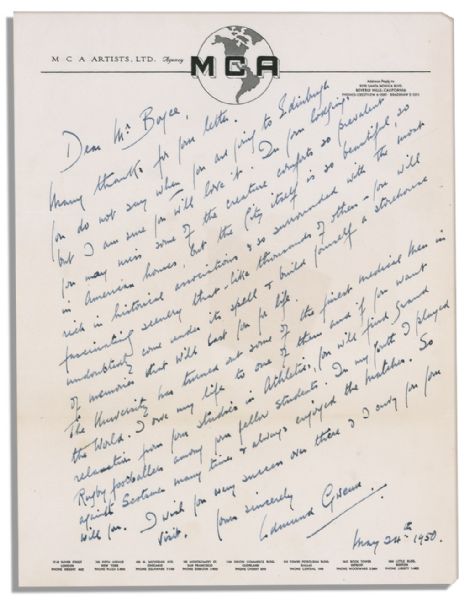 M C A ARTISTS, LTD. Agency
MCA
Address Reply to
BEVERLY HILLS, CALIFORNIA
Dear Mr Boyce,
Many thanks for your letter.
You do not say when you are going to Edinburgh
but I am sure you will love it. In your lodgings
you may miss some of the creature comforts so prevalent
in American houses, but the City itself is so beautiful, so
rich in historical associations & so surrounded with the most
fascinating scenery that - like thousands of others - you will
undoubtedly come under its spell & build yourself a storehouse
of memories that will last you for life.
The University has turned out some of the finest medical men in
the World. I owe my life to one of them and if you want
relaxation from your studies in Athletics, you will find grand
Rugby footballers among your fellow students. In my youth I played
against Scotsmen many times & always enjoyed the matches. So
will you. I wish you every success over there & I envy you your
visit.
Yours sincerely
Edmund Gwenn.
May 24th 1950.
LONDON
NEW YORK
CHICAGO
SAN FRANCISCO
CLEVELAND
DALLAS
DETROIT
BOSTON